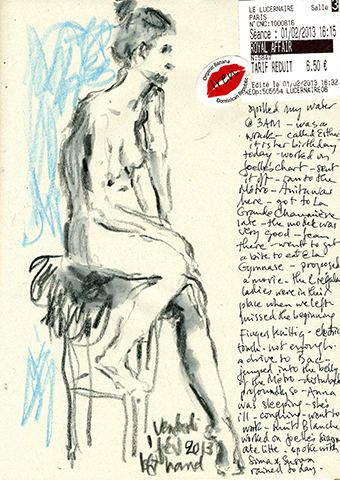 LE LUCERNAIRE Salle 3
PARIS
N°CNC:1000816
Séance : 01/02/2013 16:15
ROYAL AFFAIR
TARIF REDUIT 6.50 €
Edite le 01/02/2013 16:32
LUCERNAIRE08
Organic Banana
Dominican Republic
spilled my water
@ 3AM - was a
wreck - called Esther
it is her birthday
today - worked on
Joelle's chart - sent
it off - ran to the
Métro - Anita was
here - got to La
Grande Chaumière
late - the model was
very good -
there - went to get
a bite to eat @ La
Gymnase - proposed
a movie - the 2 regular
ladies were in their
place when we left
missed the beginning
Fingers Knitting - electric
touch - not enough -
a drive to Bac -
jumped into the belly
of the Métro - disturbed
profoundly so - Anna
was sleeping - she's
ill - coughing - went to
work - Nuit Blanche
worked on Joelle's
ate little - spoke with
Susan
rained today -
Vendredi
1 fév 2013
hand